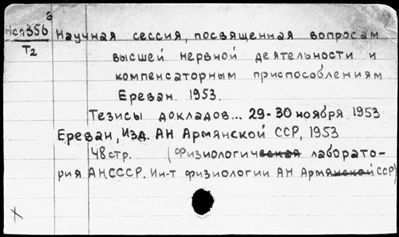 Нсп356 3
T2
Научная сессия, посвященная вопросам
высшей нервной деятельности и
компенсаторным приспособлениям
Ереван. 1953.
Тезисы докладов... 29-30 ноября 1953
Ереван, Изд. АН Армянской ССР, 1953
48 стр. (Физиологическая лаборато-
рия АН.СССР. Ин-т физиологии АН Армянской ССР)